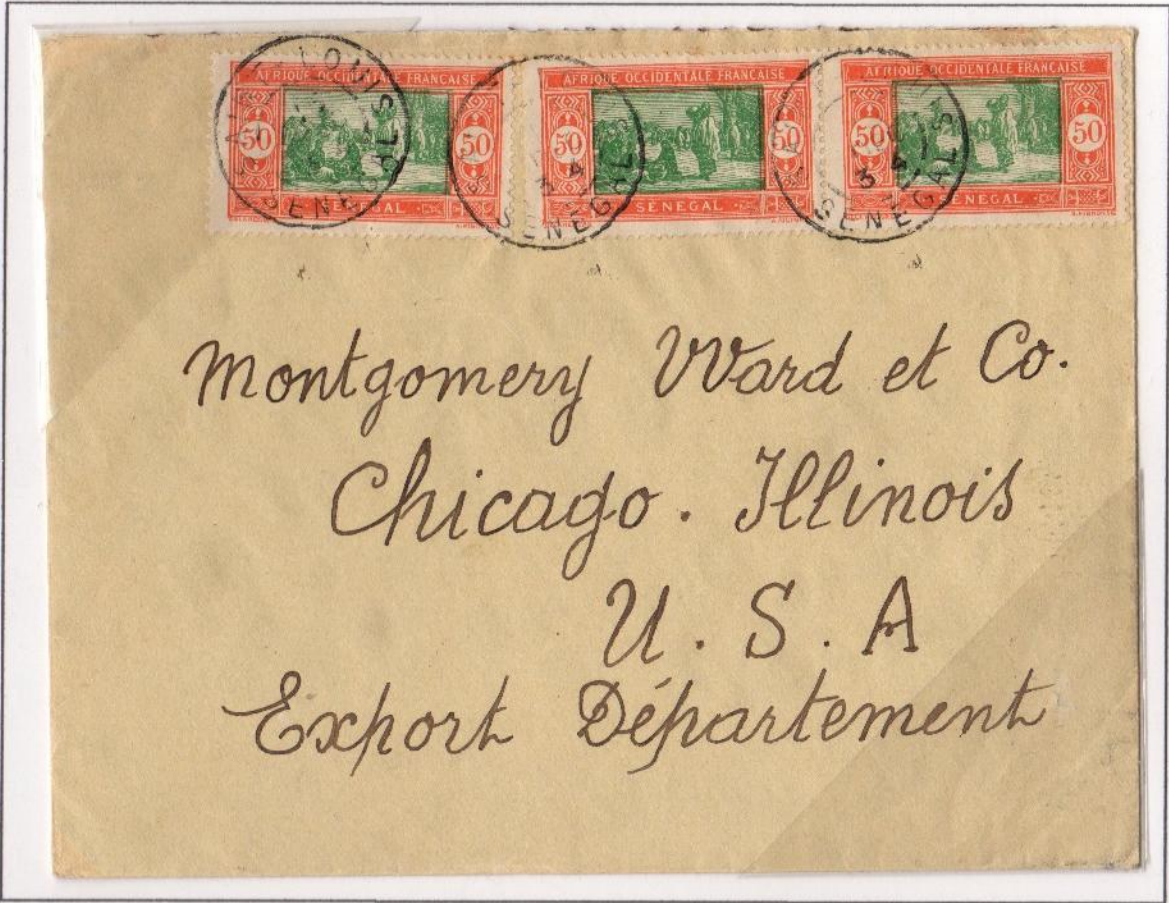 AFRIQUE OCCIDENTALE FRANÇAISE
50 50
SÉNÉGAL
AFRIQUE OCCIDENTALE FRANÇAISE
50 50
SÉNÉGAL
AFRIQUE OCCIDENTALE FRANÇAISE
50 50
SÉNÉGAL
SAINT-LOUIS
SENEGAL
SENEGAL
SENEGAL
Montgomery Ward et Co.
Chicago. Illinois
U. S. A
Export Département